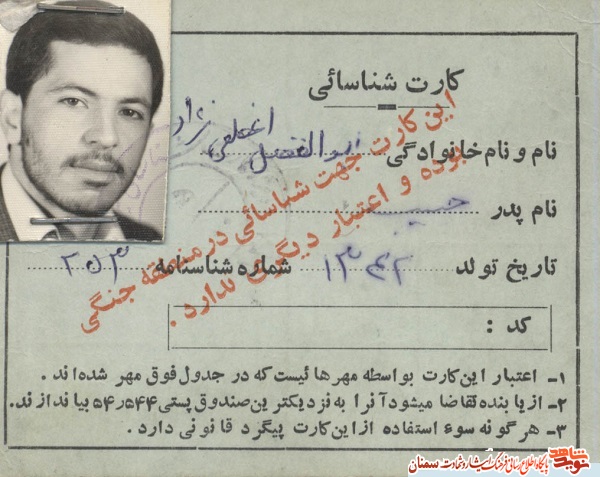 کارت شناسائی
نام و نام خانوادگی ابوالفضل نژاد
نام پدر حبیب
تاریخ تولد ۱۳۴۲ شماره شناسنامه ۲۵۳
کد :
این کارت جهت شناسائی در منطقه جنگی
بوده و اعتبار دیگری ندارد .
۱ـ اعتبار این کارت بواسطه مهرهائیست که در جدول فوق مهر شده‌اند .
۲ـ از یابنده تقاضا میشود آنرا به نزدیکترین صندوق پستی ۵۴٫۵۴۴ بیاندازند.
۳ـ هرگونه سوء استفاده از این کارت پیگرد قانونی دارد .
نوید شاهد
پایگاه اطلاع رسانی فرهنگ ایثار و شهادت سمنان